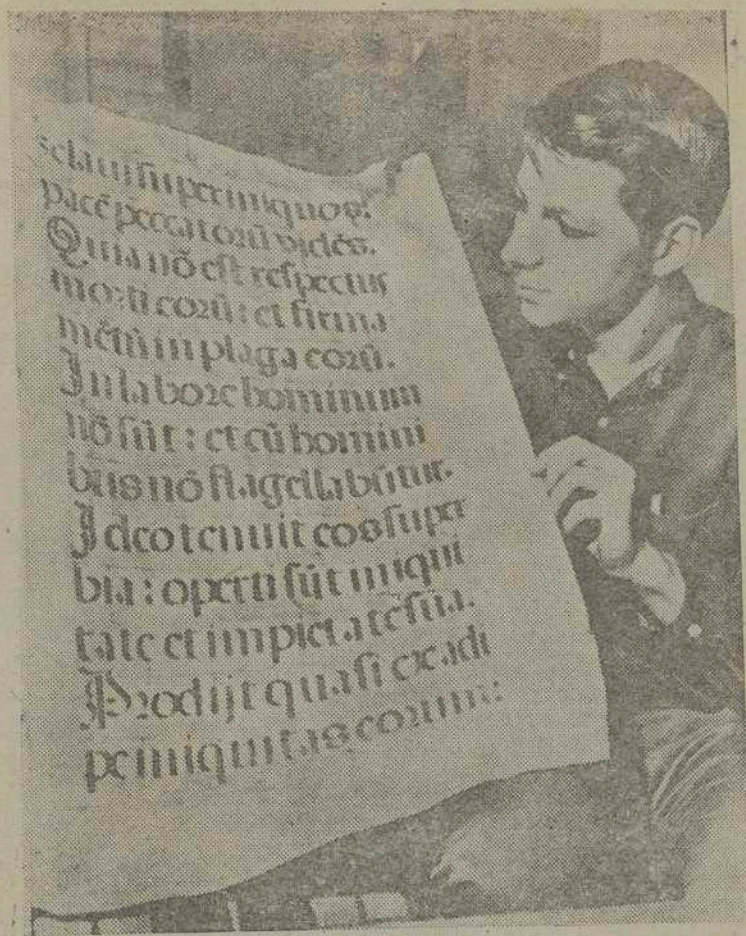 zelaui super iniquos:
pacē peccatorū vidēs.
Quia nō est respectus
morti eorū: et firma
mētū in plaga eorū.
In labore hominum
nō sūt: et cū homini
bus nō flagellabūtur.
Ideo tenuit eos super
bia: operti sūt iniqui
tate et impietatē sua.
Prodijt quasi ex adi
pe iniquitas eorum: